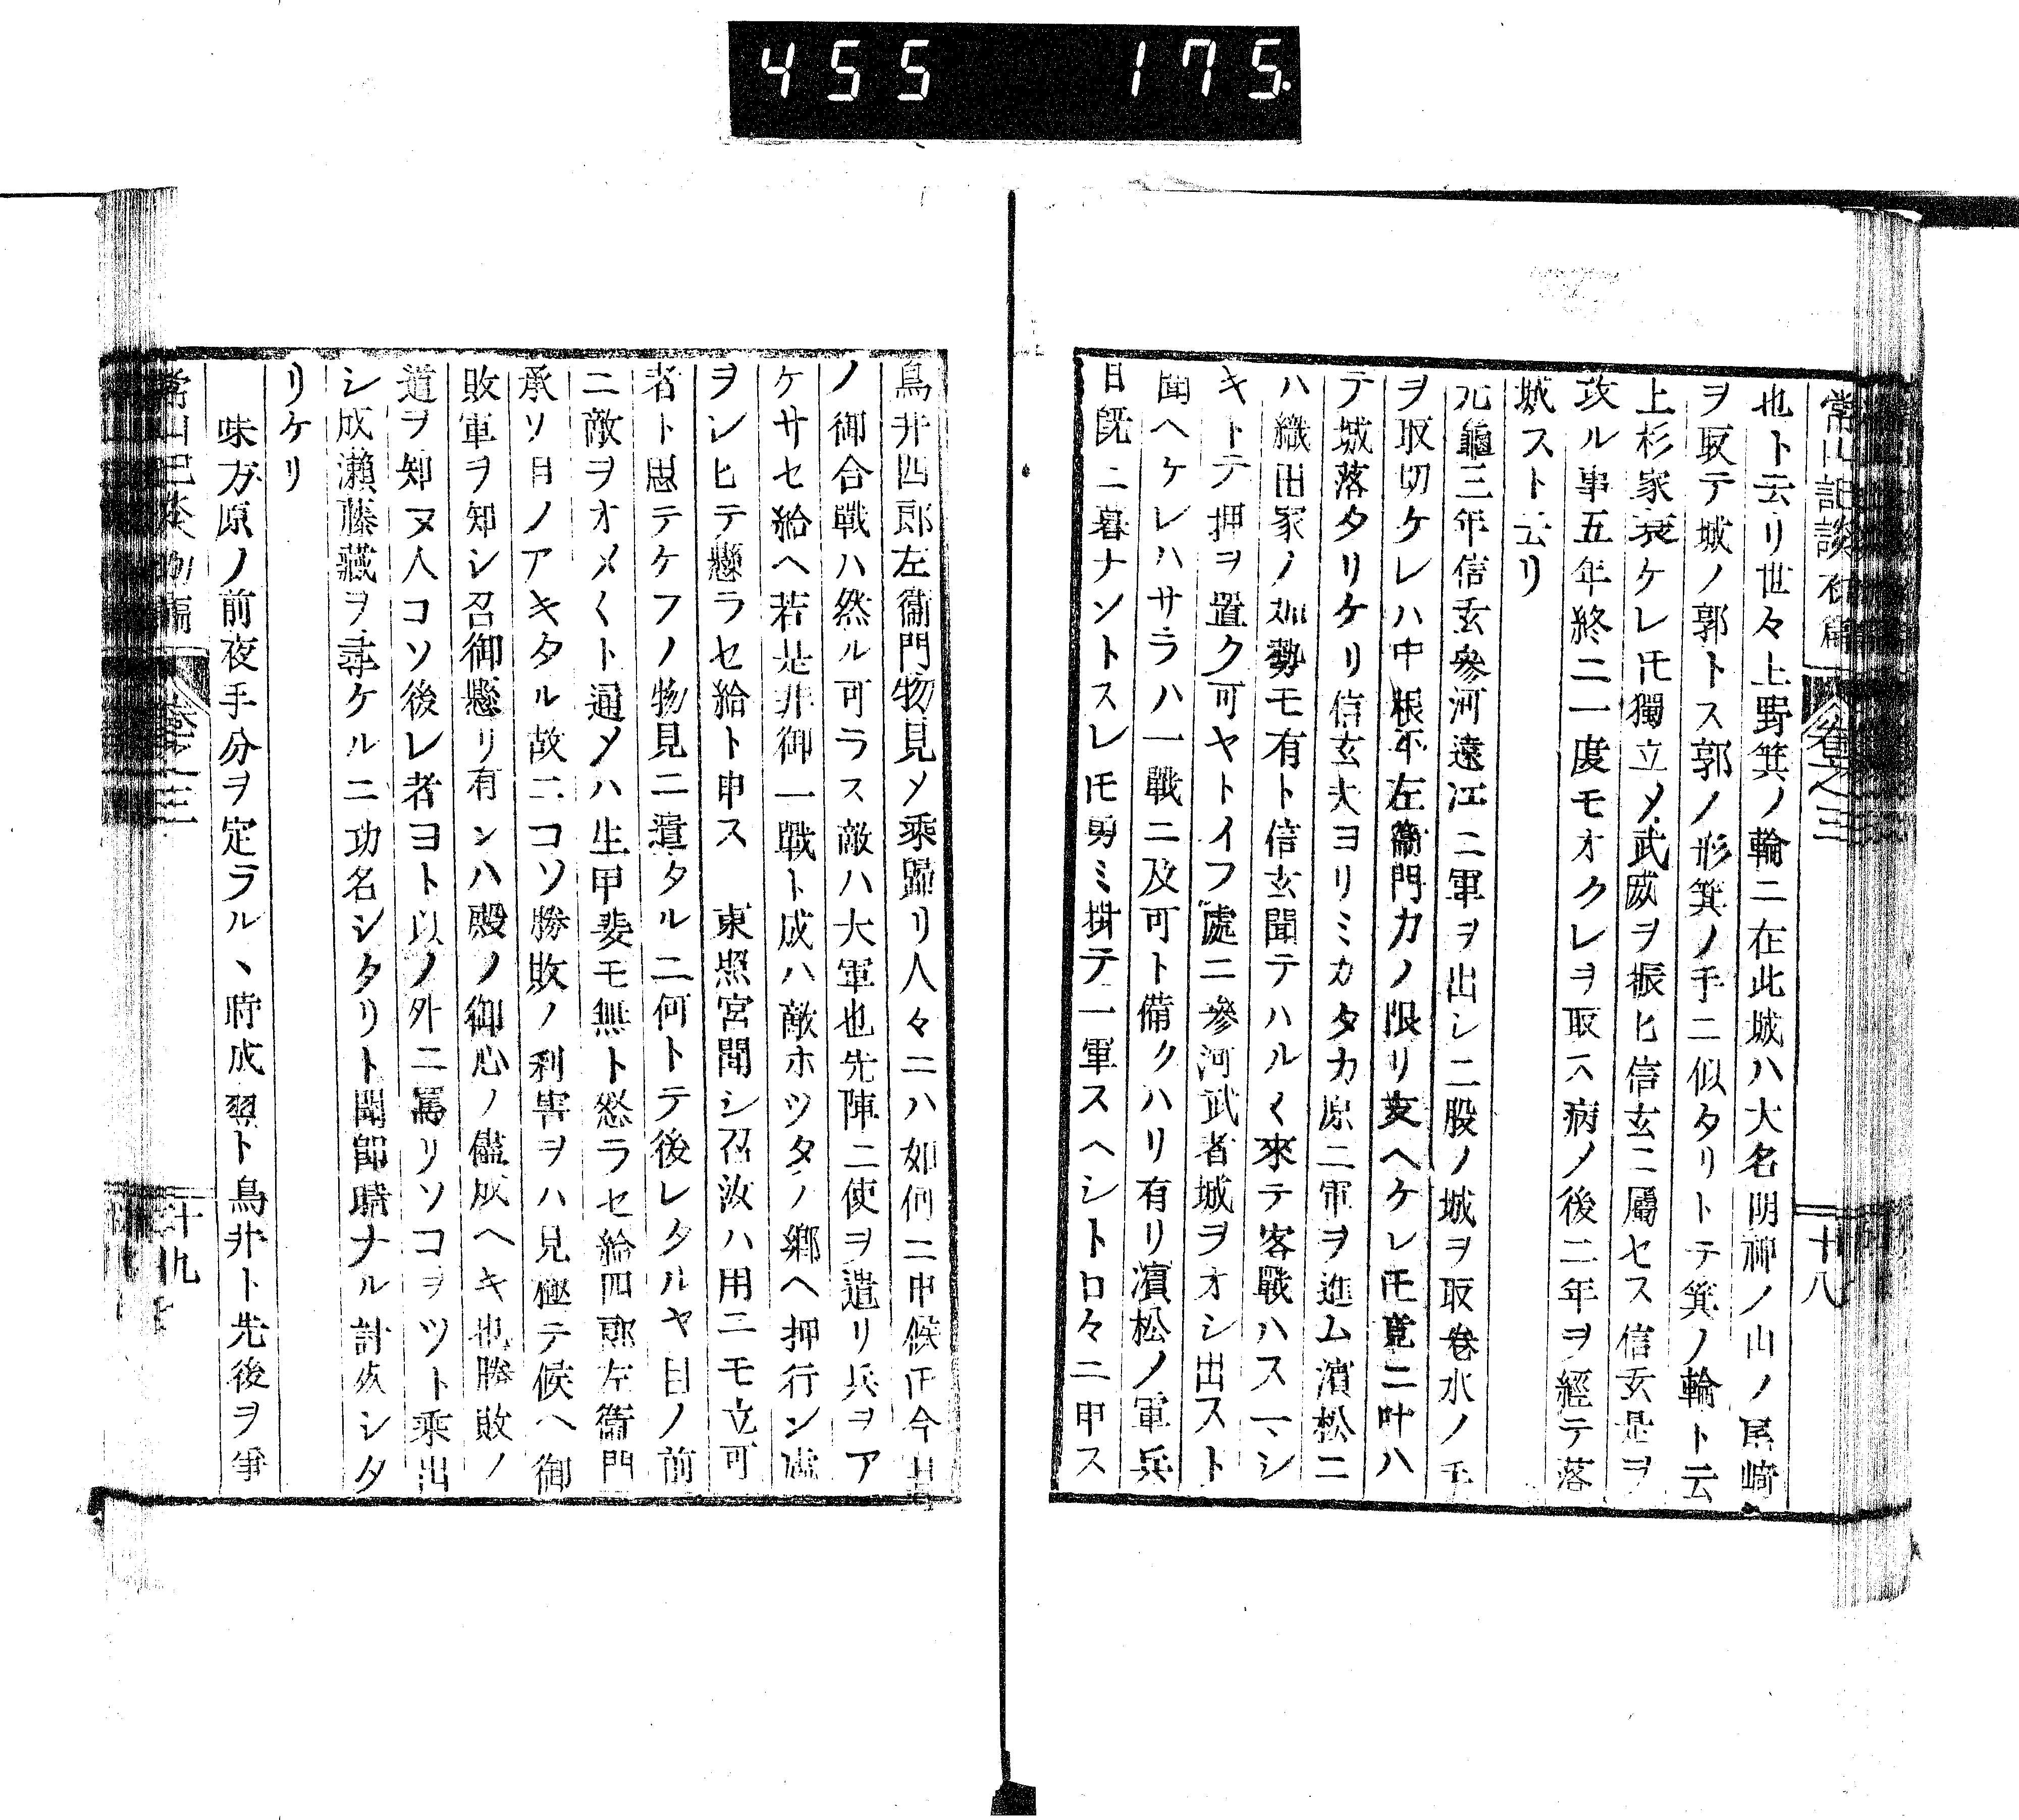 455 175.
常山記談 卷之三 十八
也ト云リ世々上野箕ノ輪ニ在此城ハ大名明神ノ山ノ尾崎
ヲ取テ城ノ郭トス郭ノ形箕ノ手ニ似タリトテ箕ノ輪ト云
上杉家衰ケレ𪜈獨立〆武威ヲ振ヒ信玄ニ屬セス信玄是ヲ
攻ル事五年終ニ一度モオクレヲ取ス病ノ後二年ヲ經テ落
城スト云リ
元龜三年信玄參河遠江ニ軍ヲ出シ二股ノ城ヲ取卷水ノ手
ヲ取切ケレハ中根平左衞門力ノ限リ支ヘケレ𪜈竟ニ叶ハ
テ城落タリケリ信玄大ヨリミカタカ原ニ軍ヲ進ム濱松ニ
ハ織田家ノ加勢モ有ト信玄聞テハル〱來テ客戰ハスマシ
キトテ押ヲ置ク可ヤトイフ處ニ參河武者城ヲオシ出スト
聞ヘケレハサラハ一戰ニ及可ト備クハリ有リ濱松ノ軍兵
日既ニ暮ナントスレ𪜈勇ミ掛テ一軍スヘシト口々ニ申ス
鳥井四郎左衞門物見〆乘歸リ人々ニハ如何ニ申候𪜈今日
ノ御合戰ハ然ル可ラス敵ハ大軍也先陣ニ使ヲ遣リ兵ヲア
ケサセ給ヘ若是非御一戰ト成ハ敵ホツタノ郷ヘ押行ン處
ヲシヒテ懸ラセ給ト申ス 東照宮聞シ召汝ハ用ニモ立可
者ト思テケフノ物見ニ遣タルニ何トテ後レタルヤ目ノ前
ニ敵ヲオメ〱ト通〆ハ生甲斐モ無ト怒ラセ給四郎左衞門
承ソ目ノアキタル故ニコソ勝敗ノ利害ヲハ見極テ候ヘ御
敗軍ヲ知シ召御懸リ有ンハ殿ノ御心ノ儘成ヘキ也勝敗ノ
道ヲ知ヌ人コソ後レ者ヨト以ノ外ニ罵リソコヲツト乘出
シ成瀬藤藏ヲ尋ケルニ功名シタリト聞卽時ナル討死シタ
リケリ
味方原ノ前夜手分ヲ定ラルヽ時成瀬ト鳥井ト先後ヲ爭
卷之三 十九